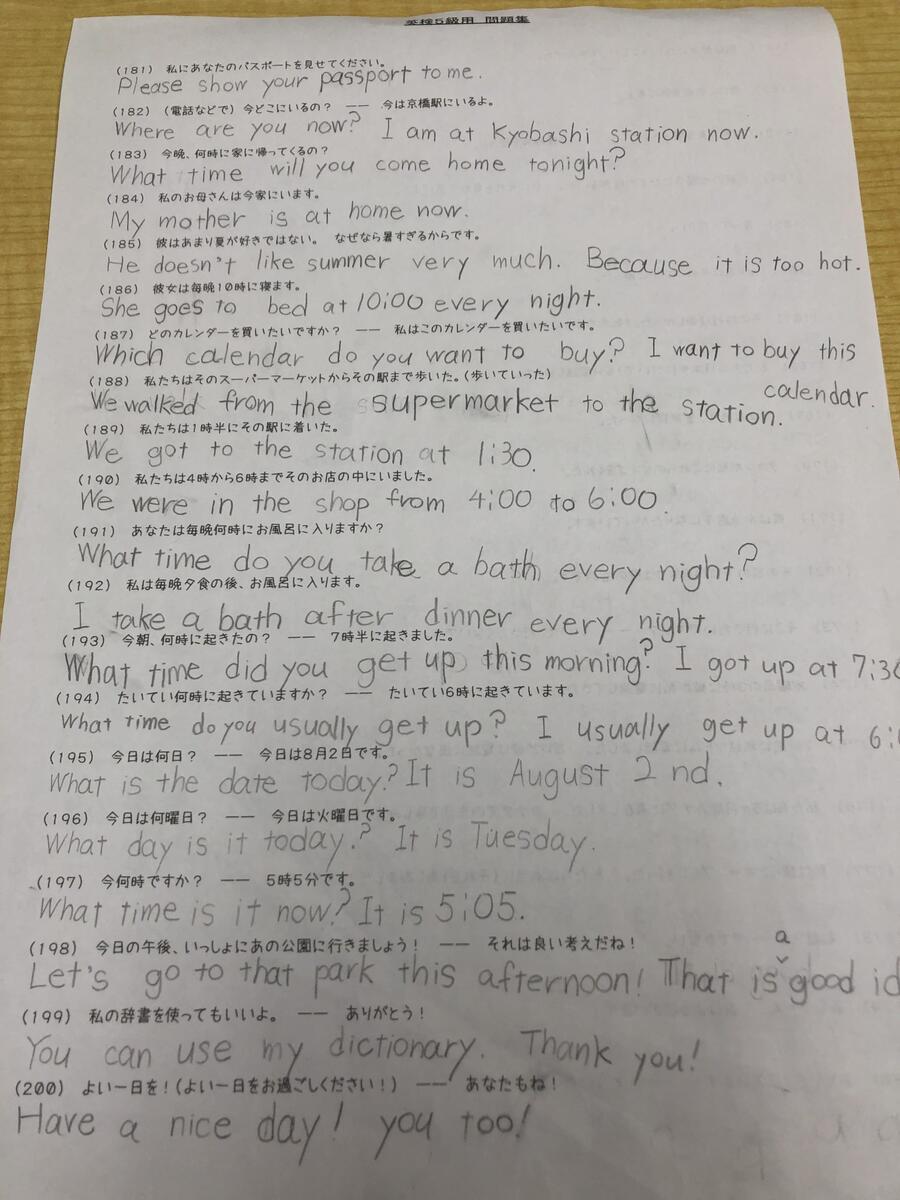 英検5級用 問題集
(181) 私にあなたのパスポートを見せてください。
Please show your passport to me.
(182) (電話などで) 今どこにいるの? ―― 今は京橋駅にいるよ。
Where are you now? I am at Kyobashi station now.
(183) 今晩、何時に家に帰ってくるの?
What time will you come home tonight?
(184) 私のお母さんは今家にいます。
My mother is at home now.
(185) 彼はあまり夏が好きではない。 なぜなら暑すぎるからです。
He doesn't like summer very much. Because it is too hot.
(186) 彼女は毎晩10時に寝ます。
She goes to bed at 10:00 every night.
(187) どのカレンダーを買いたいですか? ―― 私はこのカレンダーを買いたいです。
Which calendar do you want to buy? I want to buy this
calendar.
(188) 私たちはそのスーパーマーケットからその駅まで歩いた。(歩いていった)
We walked from the supermarket to the station.
(189) 私たちは1時半にその駅に着いた。
We got to the station at 1:30.
(190) 私たちは4時から6時までそのお店の中にいました。
We were in the shop from 4:00 to 6:00.
(191) あなたは毎晩何時にお風呂に入りますか?
What time do you take a bath every night?
(192) 私は毎晩夕食の後、お風呂に入ります。
I take a bath after dinner every night.
(193) 今朝、何時に起きたの? ―― 7時半に起きました。
What time did you get up this morning? I got up at 7:30
(194) たいてい何時に起きていますか? ―― たいてい6時に起きています。
What time do you usually get up? I usually get up at 6:
(195) 今日は何日? ―― 今日は8月2日です。
What is the date today? It is August 2nd.
(196) 今日は何曜日? ―― 今日は火曜日です。
What day is it today.? It is Tuesday.
(197) 今何時ですか? ―― 5時5分です。
What time is it now? It is 5:05.
(198) 今日の午後、いっしょにあの公園に行きましょう! ―― それは良い考えだね!
Let's go to that park this afternoon! That is a good id
(199) 私の辞書を使ってもいいよ。 ―― ありがとう!
You can use my dictionary. Thank you!
(200) よい一日を!(よい一日をお過ごしください!) ―― あなたもね!
Have a nice day! you too!